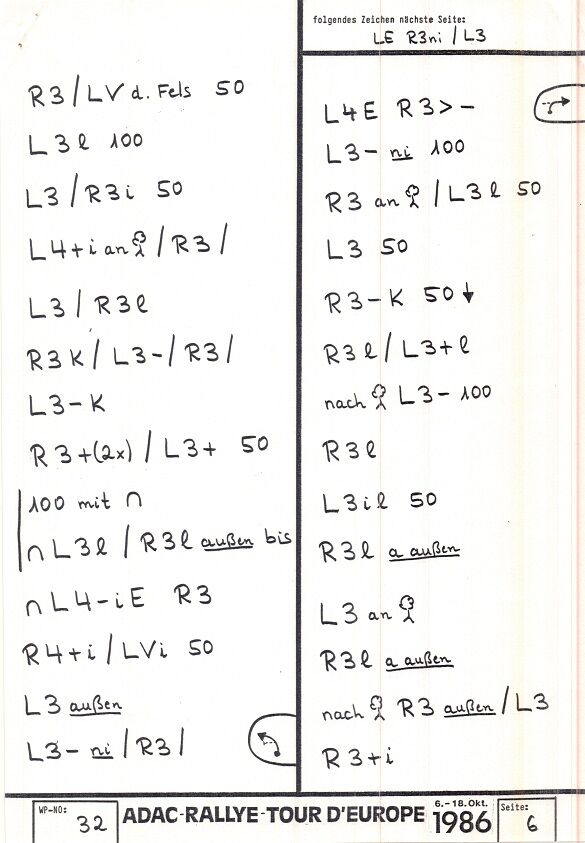 folgendes Zeichen nächste Seite:
LE R3ni / L3
R3 / LV d. Fels 50
L3l 100
L3 / R3i 50
L4+i an / R3 /
L3 / R3l
R3K / L3- / R3 /
L3-K
R3+(2x) / L3+ 50
100 mit ∩
∩ L3l / R3l außen bis
∩ L4-iE R3
R4+i / LVi 50
L3 außen
L3- ni / R3 /
L4E R3>-
L3- ni 100
R3 an / L3l 50
L3 50
R3-K 50 ↓
R3l / L3+l
nach L3- 100
R3l
L3il 50
R3l a außen
L3 an
R3l a außen
nach R3 außen / L3
R3+i
WP-NO: 32
ADAC-RALLYE-TOUR D'EUROPE
6.-18.Okt. 1986
Seite: 6